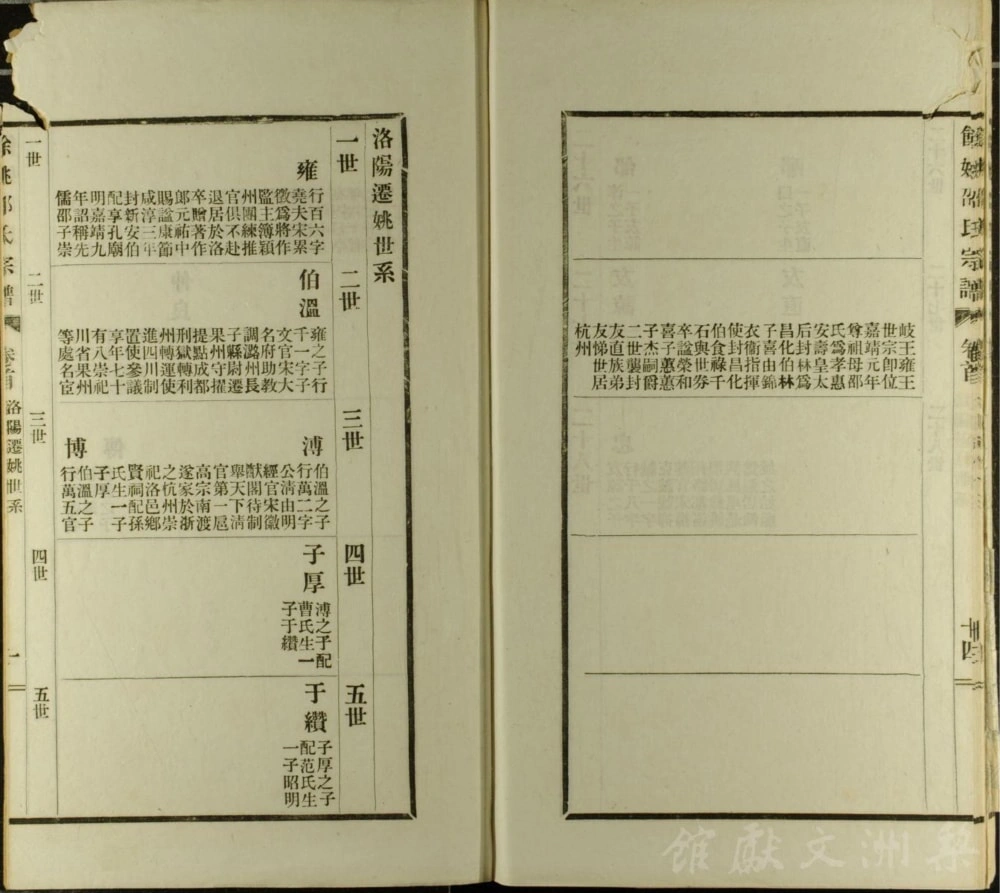 餘姚邵氏宗譜
卷首
十四
岐王雍王
世宗卽位
嘉靖元年
尊祖母邵
氏爲孝惠
安壽皇太
后封林爲
昌化伯林
子喜由錦
衣衞指揮
使封昌化
伯食祿千
石與世券
卒謚榮和
喜子蕙蕙
子杰嗣爵
二世襲封
友直族弟
友悌世居
杭州
洛陽遷姚世系
一世
雍
行百六字
堯夫宋累
徵爲將作
監主簿穎
州團練推
官俱不赴
退居於洛
卒贈著作
郎元祐中
賜謚康節
咸淳三年
封新安伯
配享孔廟
明嘉靖九
年詔稱先
儒邵子崇
二世
伯溫
雍之子行
千一字子
文官宋大
名府助教
調潞州長
子縣尉遷
果州守擢
提點成都
刑獄轉利
州轉運使
進四川制
置使參議
享年七十
有八崇祀
川省果州
等處名宦
三世
溥
伯溫之子
行萬二字
公淸由明
經官宋徽
猷閣待制
舉天下淸
官第一扈
高宗南渡
遂家於浙
之杭州崇
祀洛邑鄉
賢祠配孫
氏生一子
子厚
博
伯溫之子
行萬五官
四世
子厚
溥之子配
曹氏生一
子于纘
五世
于纘
子厚之子
配范氏生
一子昭明
餘姚邵氏宗譜
卷之首
洛陽遷姚世系
一
一世
二世
三世
四世
五世
梨洲文獻館